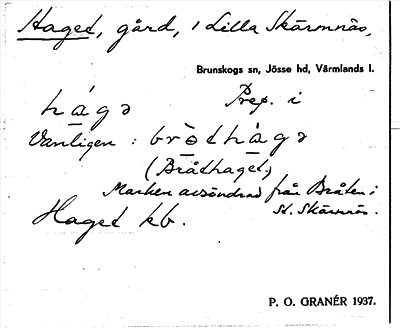 Haget, gård, i Lilla Skärmnäs,
Brunskogs sn, Jösse hd, Värmlands l.
hágə Prep. i
Vanligen: brò̱thà̱gə
(Bråthaget)
Marken avsöndrad från Bråten i
St. Skärmnäs.
Haget kb.
P. O. GRANÉR 1937.